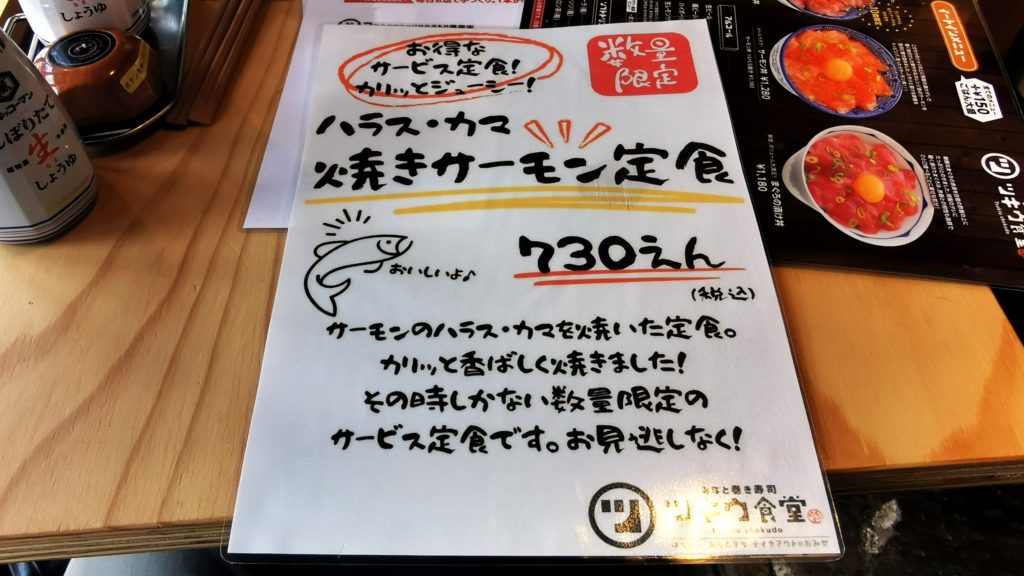 お得な
サービス定食!
カリッとジューシー!
数量
限定
ハラス・カマ
焼きサーモン定食
おいしいよ♪
730えん
(税込)
サーモンのハラス・カマを焼いた定食。
カリッと香ばしく焼きました!
その時しかない数量限定の
サービス定食です。お見逃しなく!
みなと巻き寿司
ツキウ食堂
しょうゆ
キッコーマン
しぼりたて
生
しょうゆ
トートインメニュー
サーモン丼 ¥1,280
まぐろの漬け丼
¥1,180
+¥150
ツキウ食堂